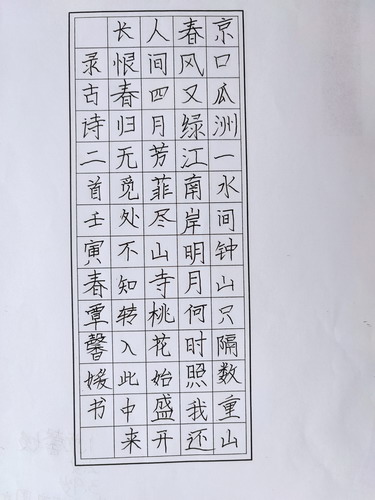 京口瓜洲一水间钟山只隔数重山
春风又绿江南岸明月何时照我还
人间四月芳菲尽山寺桃花始盛开
长恨春归无觅处不知转入此中来
录古诗二首壬寅春覃馨媛书